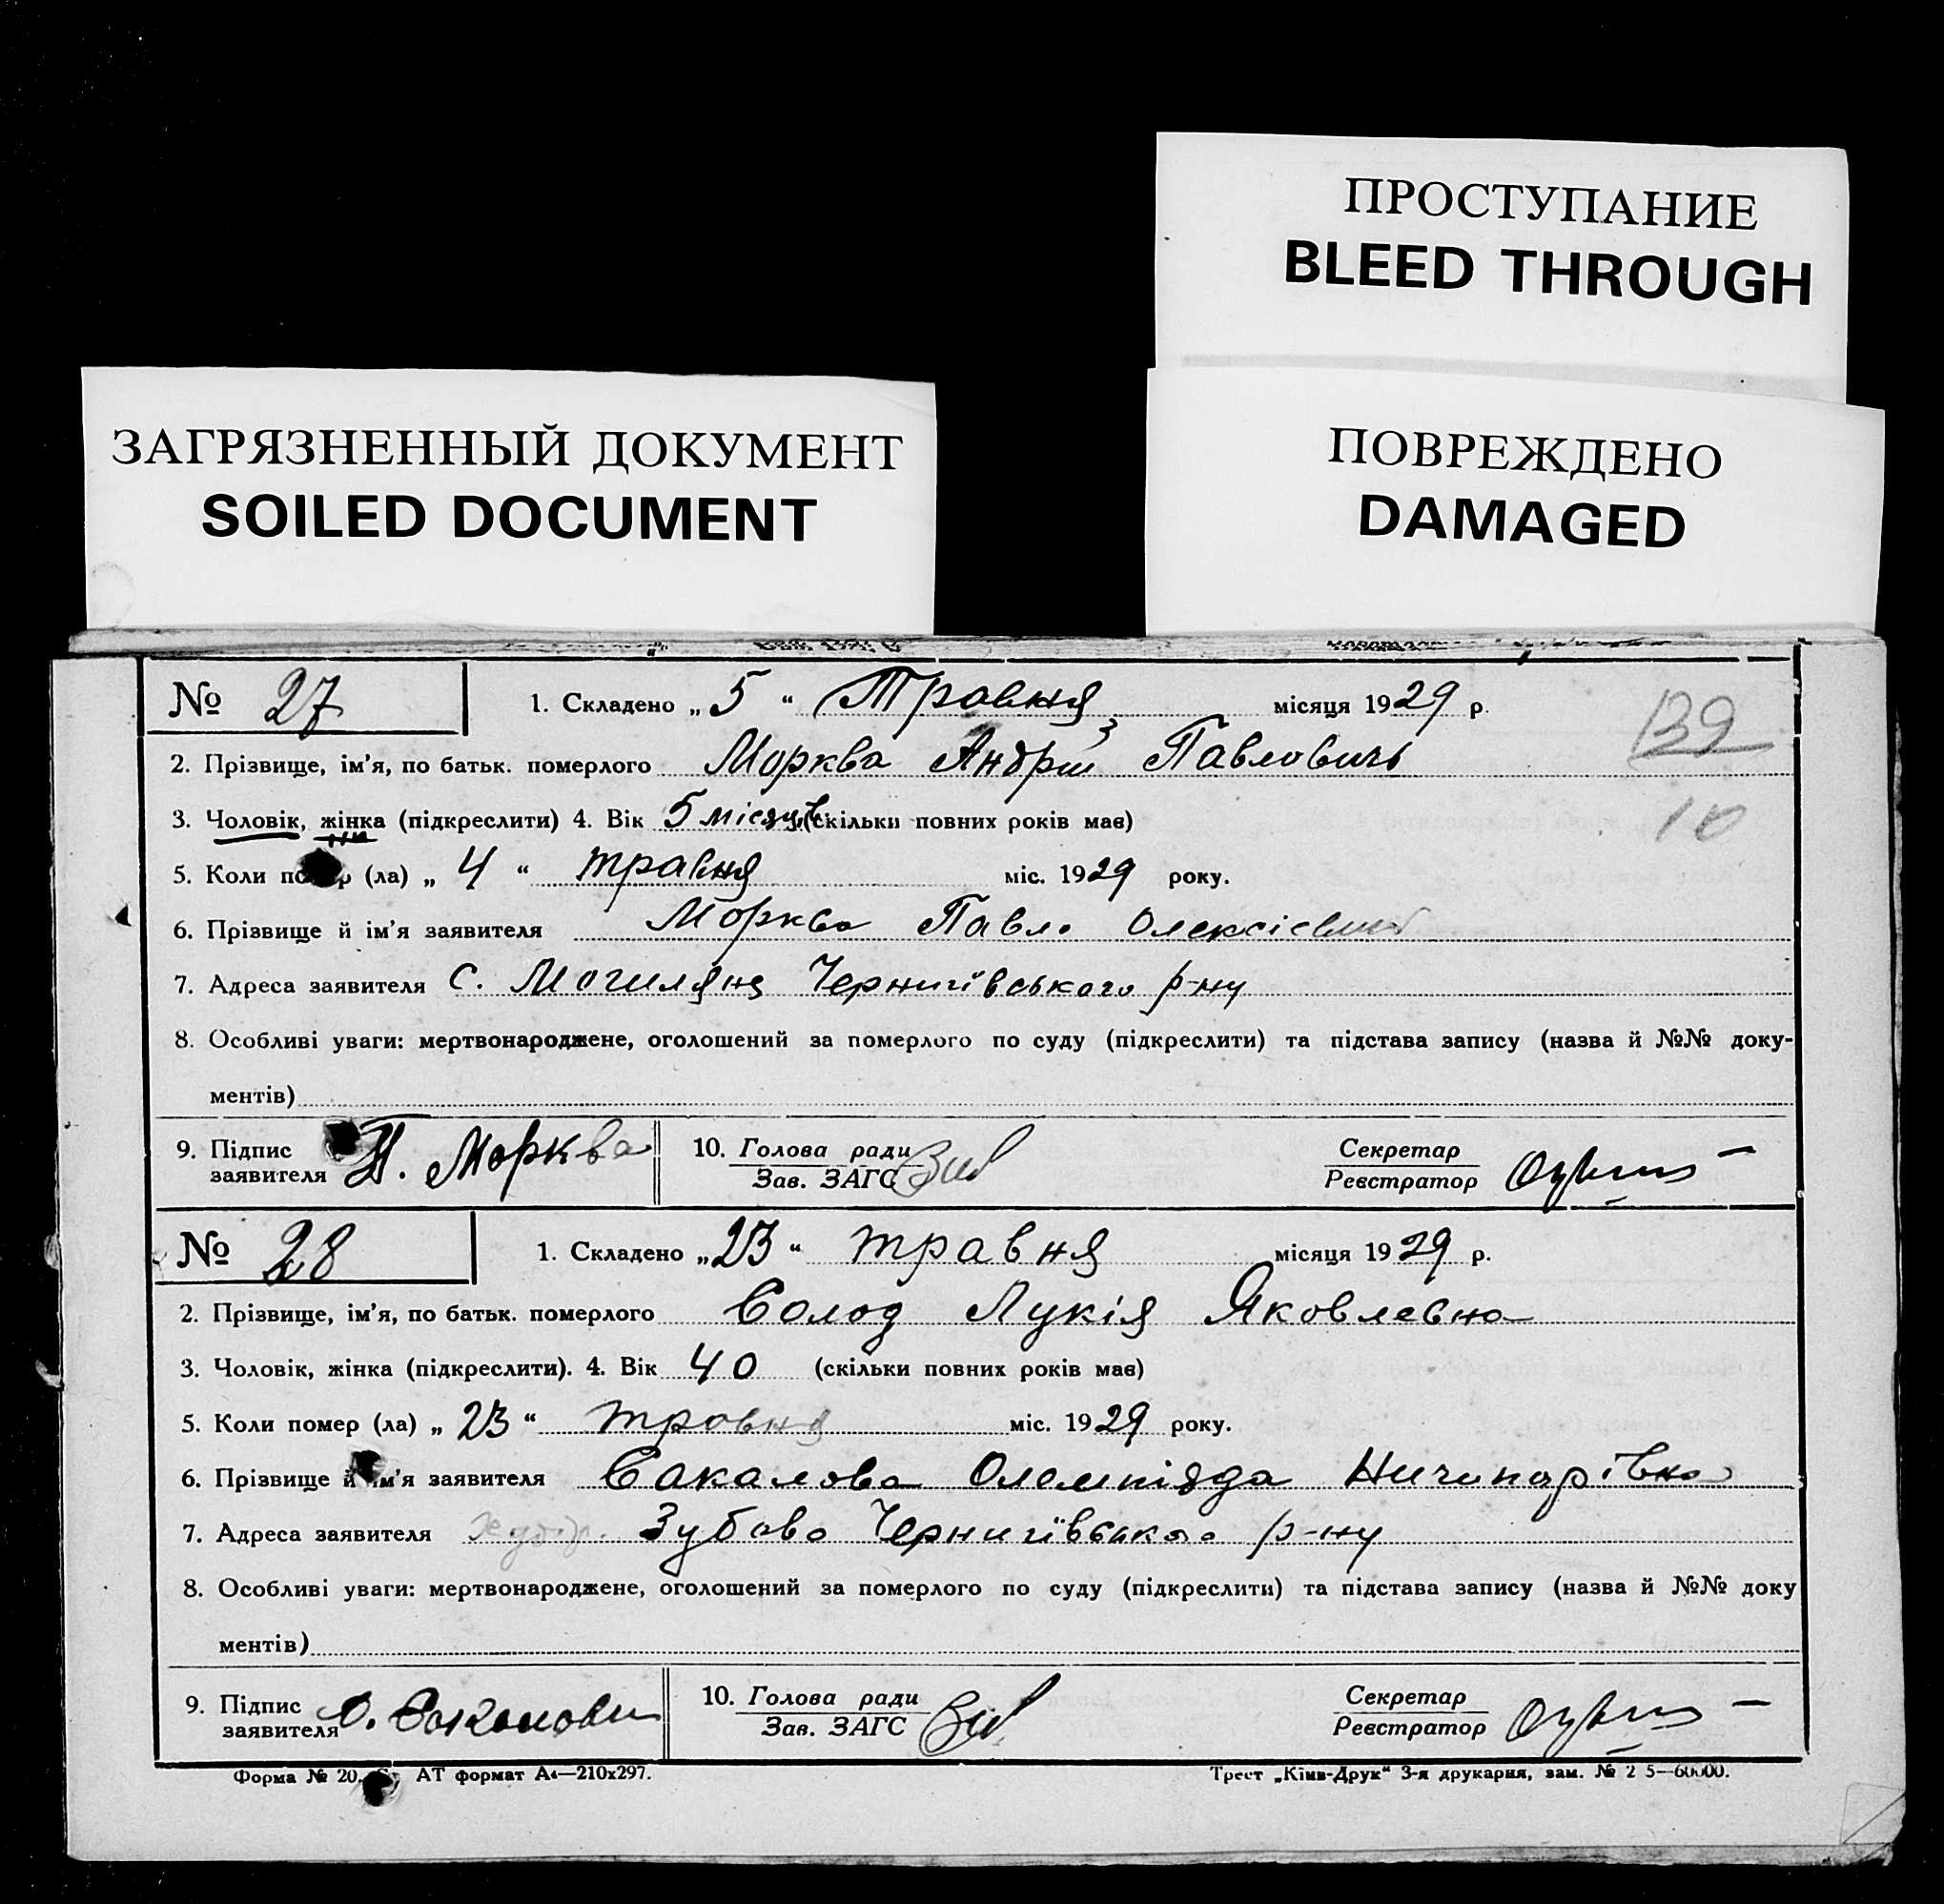 ПРОСТУПАНИЕ
BLEED THROUGH
ЗАГРЯЗНЕННЫЙ ДОКУМЕНТ
SOILED DOCUMENT
ПОВРЕЖДЕНО
DAMAGED
№ 27 1. Складено „ 5 “ Травня місяця 1929 р.
139
2. Прізвище, ім’я, по батьк. померлого Морква Андрій Павловичь
3. Чоловік, жінка (підкреслити) 4. Вік 5 місяців (скільки повних років має)
10
5. Коли помер (ла) „ 4 “ травня міс. 1929 року.
6. Прізвище й ім’я заявителя Морква Павло Олексієвич
7. Адреса заявителя с. Могиляни Чернигівського р-ну
8. Особливі уваги: мертвонароджене, оголошений за померлого по суду (підкреслити) та підстава запису (назва й №№ доку-
ментів)
9. Підпис заявителя П. Морква 10. Голова ради Зав. ЗАГС Секретар Реєстратор
№ 28 1. Складено „23“ травня місяця 1929 р.
2. Прізвище, ім’я, по батьк. померлого Солод Лукія Яковлевна
3. Чоловік, жінка (підкреслити). 4. Вік 40 (скільки повних років має)
5. Коли помер (ла) „ 23 “ травня міс. 1929 року.
6. Прізвище й ім’я заявителя Сакалова
7. Адреса заявителя Зубово Чернигівського р-ну
8. Особливі уваги: мертвонароджене, оголошений за померлого по суду (підкреслити) та підстава запису (назва й №№ доку
ментів)
9. Підпис заявителя О. 10. Голова ради Зав. ЗАГС Секретар Реєстратор
Форма № 20. АТ формат А4—210х297. Трест „Київ-Друк“ 3-я друкарня, зам. №